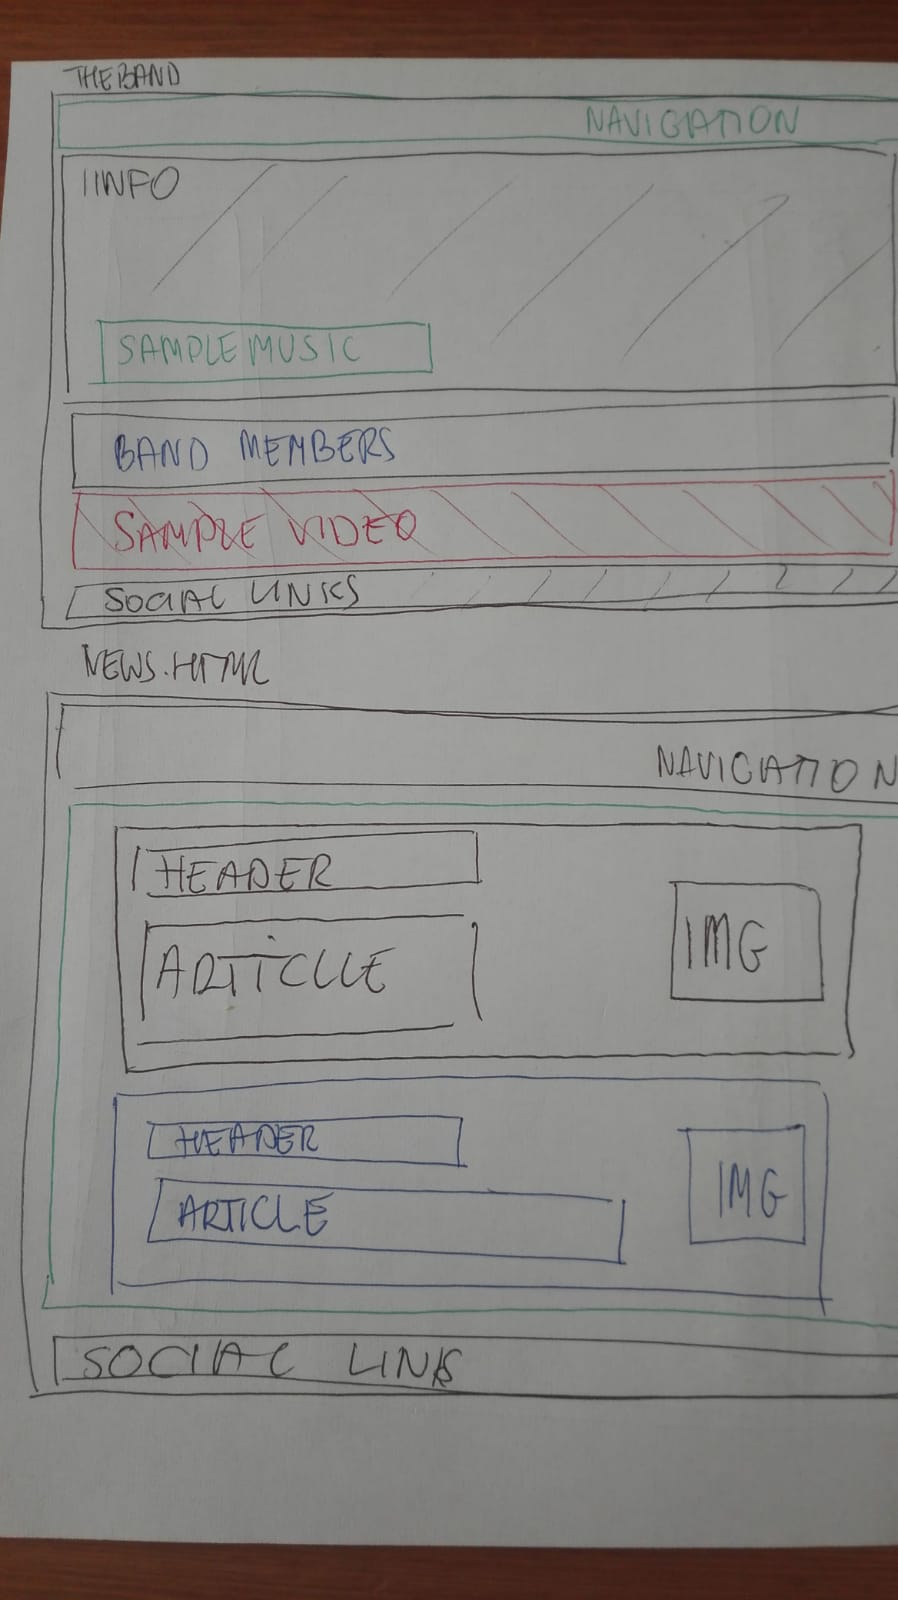 THE BAND
NAVIGATION
IINFO
SAMPLE MUSIC
BAND MEMBERS
SAMPLE VIDEO
SOCIAL LINKS
NEWS.HTML
NAVIGATION
HEADER
ARTICLLE
IMG
HEADER
ARTICLE
IMG
SOCIAL LINKS